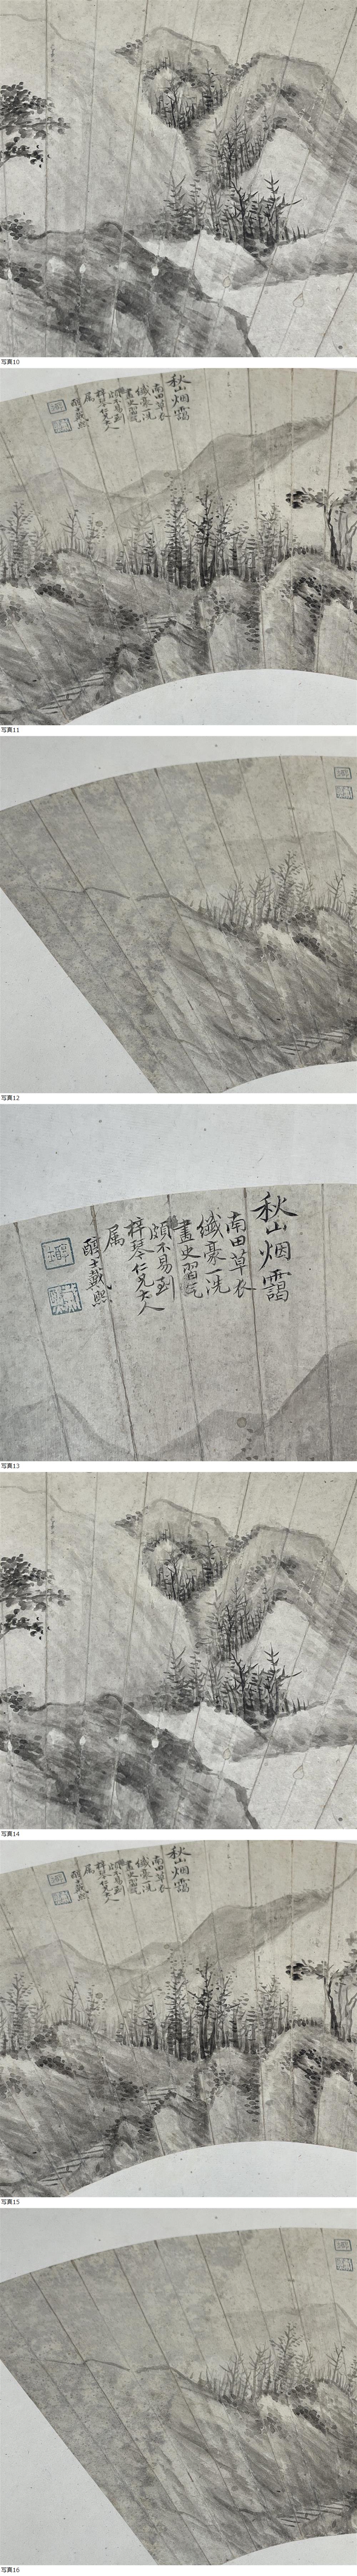 写真10
秋山烟靄
南田草衣
纖豪一洗
畫史習氣
頗不易到
梓琴仁兄大人
属
醇士戴熙
写真11
写真12
秋山烟靄
南田草衣
纖豪一洗
畫史習氣
頗不易到
梓琴仁兄大人
属
醇士戴熙
写真13
写真14
秋山烟靄
南田草衣
纖豪一洗
畫史習氣
頗不易到
梓琴仁兄大人
属
醇士戴熙
写真15
写真16